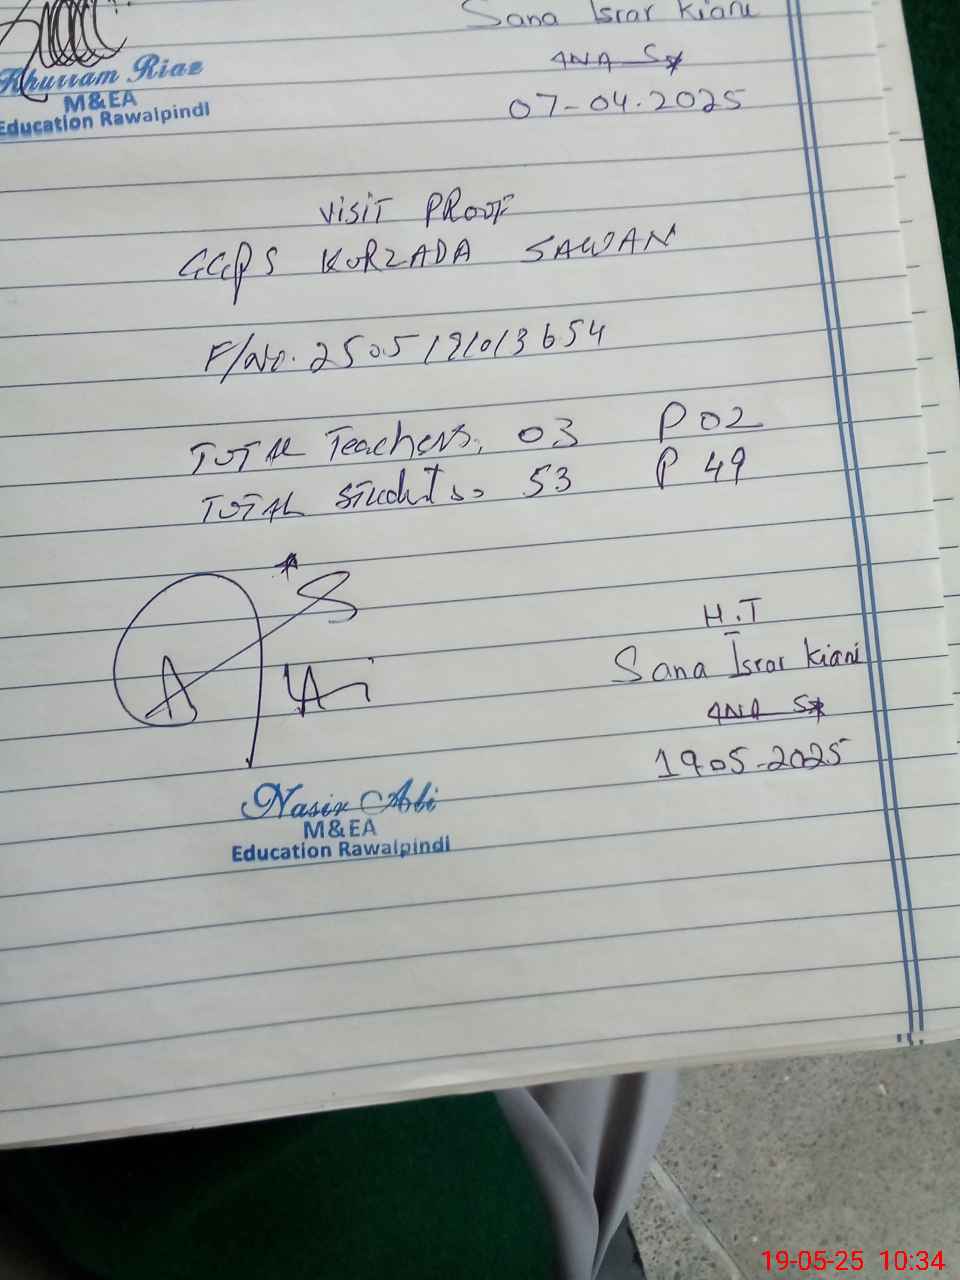 Sana Israr Kiani
Khurram Riaz
M&EA
Education Rawalpindi
07-04.2025
VISIT PROOF
GGPS KURZADA SAWAN
F/No. 2505191013654
TOTAL Teachers. 03 P 02
TOTAL Students. 53 P 49
H.T
Sana Israr Kiani
19-05-2025
Nasir Ali
M&EA
Education Rawalpindi
19-05-25 10:34